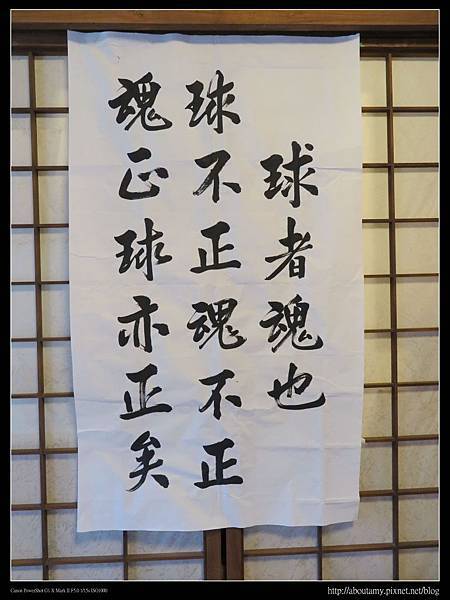 球者魂也
球不正魂不正
魂正球亦正矣
Canon PowerShot G1 X Mark II F5.0 1/15s ISO1000
http://aboutamy.pixnet.net/blog